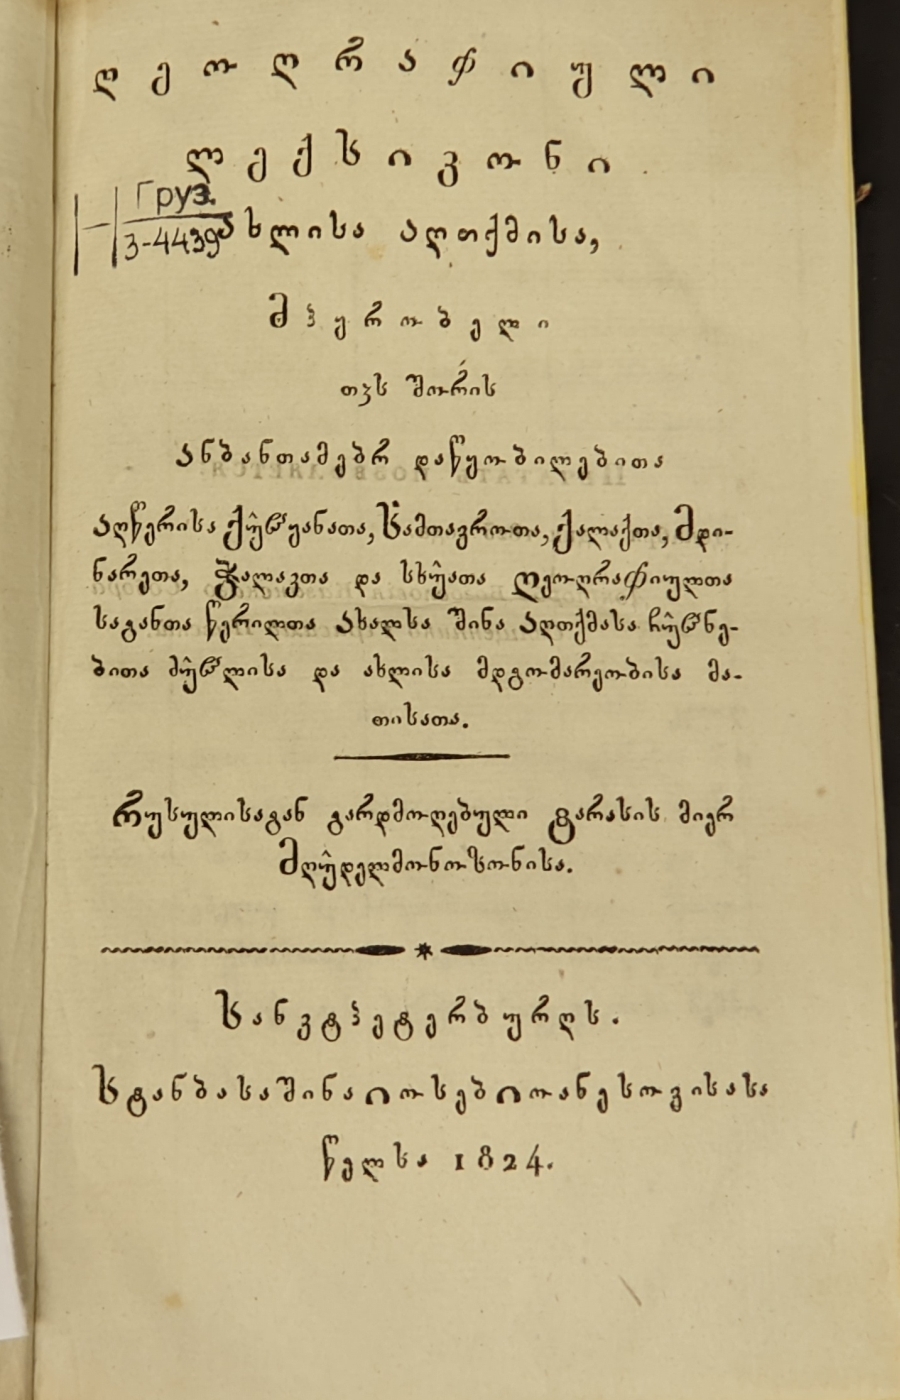 ღეოღრაფიული
ლექსიკონი
Груз.
3-4439
ახლისა აღთქმისა,
მპყრობელი
თჳს შორის
ანბანთამებრ დაწყობილებითა
აღწერისა ქუ̂ჱყანათა, სამთავროთა, ქალაქთა, მდი-
ნარეთა, ჭალაკთა და სხუ̂ათა ღეოღრაფიულთა
საგანთა წერილთა ახალსა შინა აღთქმასა ჩუ̂ჱნე-
ბითა ძუ̂ჱლისა და ახლისა მდგომარეობისა მა-
თისათა.
რუსულისაგან გარდმოღებული ტარასის მიერ
მღუ̂დელმონოზონისა.
სანკტპეტერბურღს.
სტანბასაშინაიოსებიოანესოვისასა
წელსა 1824.